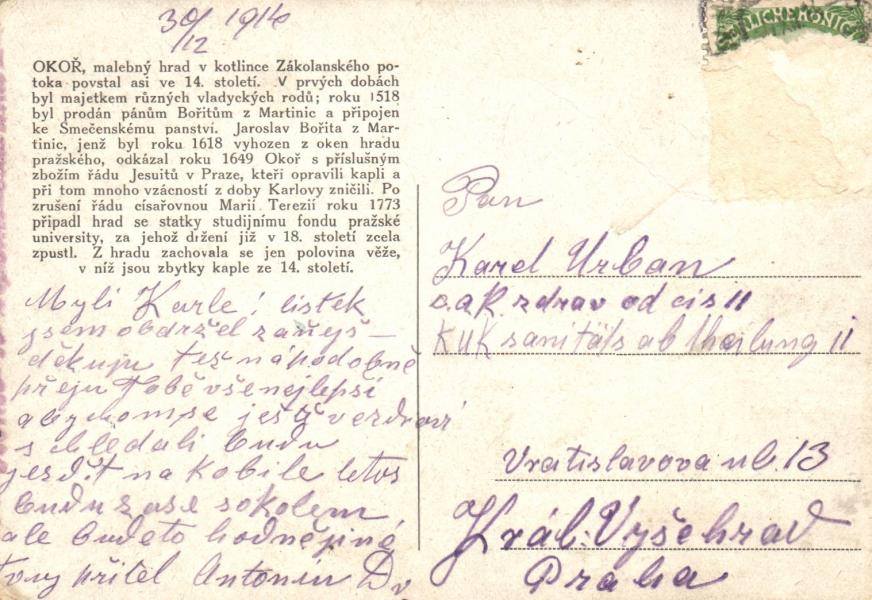 30/12 1916
OKOŘ, malebný hrad v kotlince Zákolanského po-
toka povstal asi ve 14. století. V prvých dobách
byl majetkem různých vladyckých rodů; roku 1518
byl prodán pánům Bořitům z Martinic a připojen
ke Smečenskému panství. Jaroslav Bořita z Mar-
tinic, jenž byl roku 1618 vyhozen z oken hradu
pražského, odkázal roku 1649 Okoř s příslušným
zbožím řádu Jesuitů v Praze, kteří opravili kapli a
při tom mnoho vzácností z doby Karlovy zničili. Po
zrušení řádu císařovnou Marií Terezií roku 1773
připadl hrad se statky studijnímu fondu pražské
university, za jehož držení již v 18. století zcela
zpustl. Z hradu zachovala se jen polovina věže,
v níž jsou zbytky kaple ze 14. století.
Mylí Karle! listek
jsem obdržel
děkuju též nápodobně
přeju Tobě všenejlepší
ve zdraví
shledali budu
jezdit na kobile letos
budu zase sokolem
ale budeto hodnějiné
Tvuj přítel Antonin
Pan
Karel Urban
c. a k. zdrav od čis 11
KUK sanitäts abtheilung 11
Vratislavova ul. 13
Král. Vyšehrad
Praha